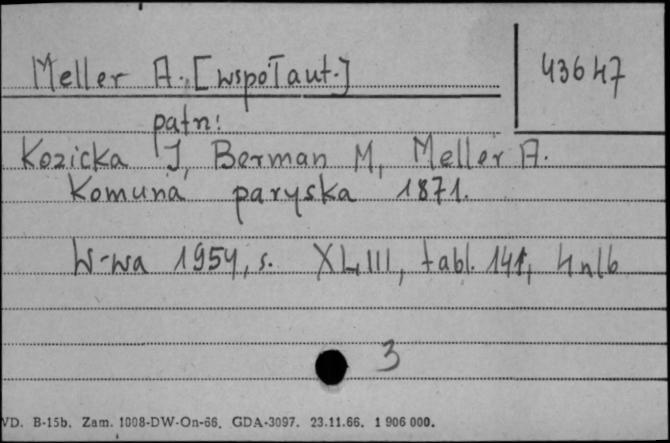 Meller A. [współaut.]
43647
patrz:
Kozicka J, Berman M, Meller A.
Komuna paryska 1871.
W-wa 1954, s. XLIII, tabl. 141, 4 nlb
3
VD. B-15b. Zam. 1008-DW-On-66. GDA-3097. 23.11.66. 1 906 000.